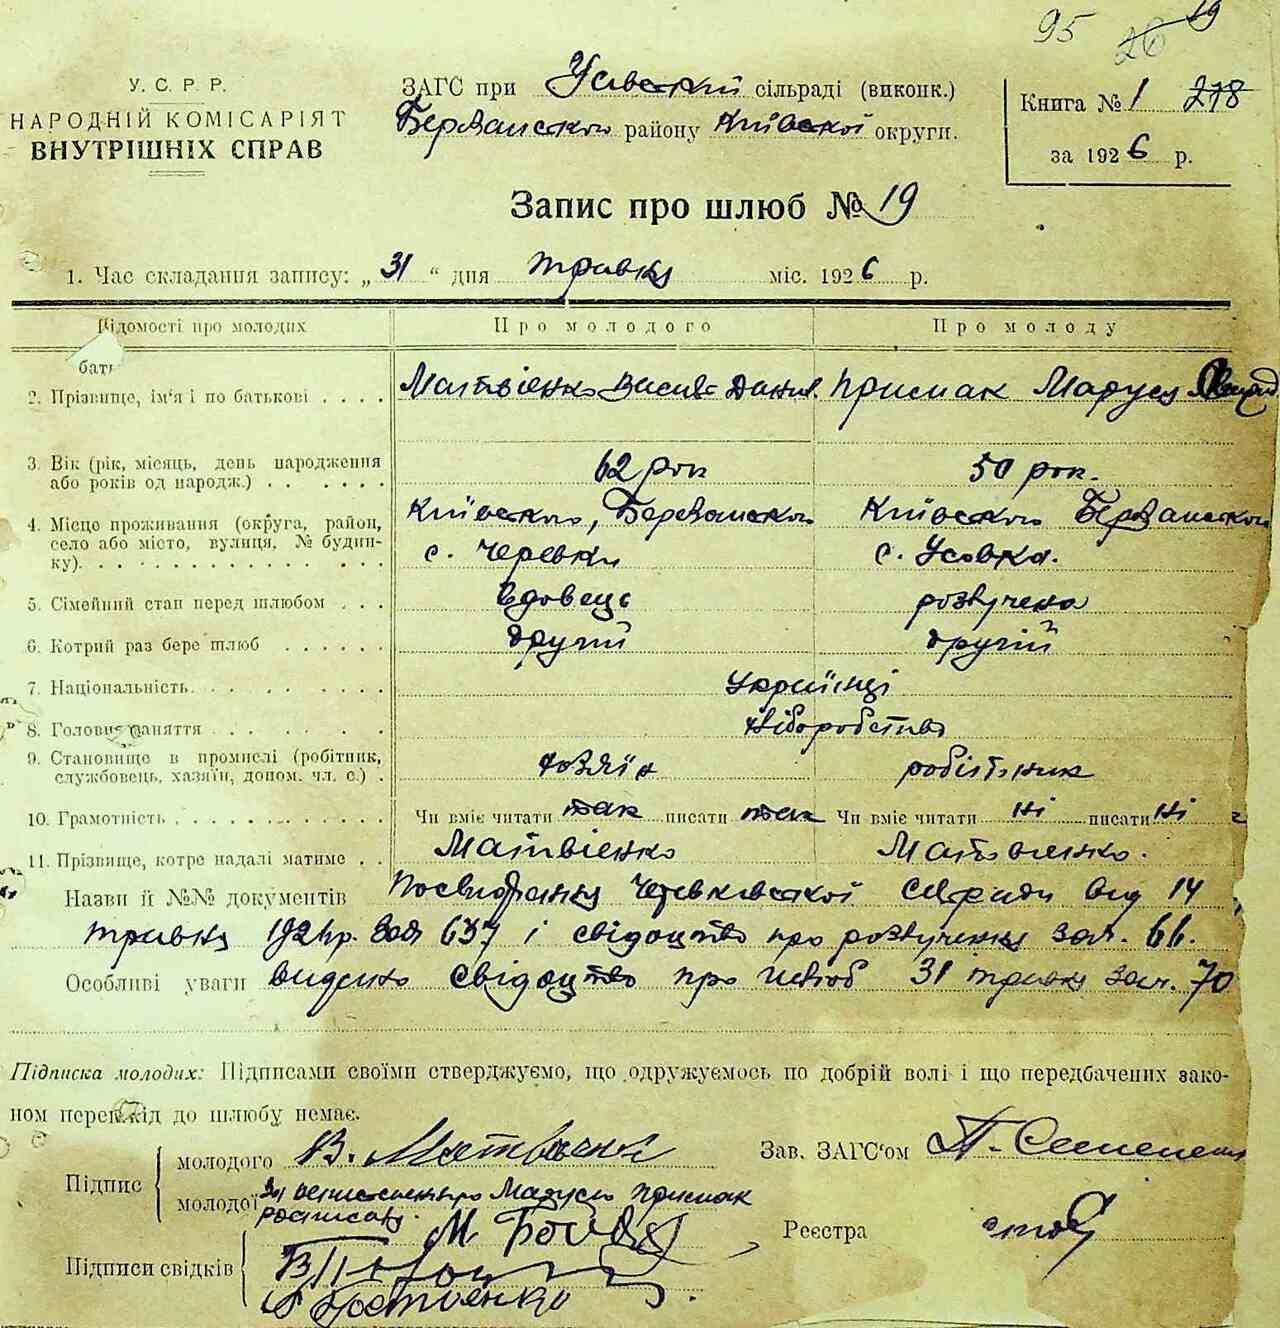 95 26 19
У. С. Р. Р.
НАРОДНІЙ КОМІСАРІЯТ
ВНУТРІШНІХ СПРАВ
ЗАГС при Усівский сільраді (виконк.)
Березанского району Київской округи.
Книга № 1 218
за 1926 р.
Запис про шлюб № 19
1. Час складання запису: „ 31 “ дня травня міс. 1926 р.
Відомості про молодих Про молодого Про молоду
бать
2. Прізвище, ім‘я і по батькові . . . . Матвієнко Василь Данил. Присяк Маруся
3. Вік (рік, місяць, день народження 62 рок 50 рок.
або років од народж.) . . . . . .
4. Місце проживання (округа, район, Київского, Березанского Київского Березанского
село або місто, вулиця, № будин- с. Черевки с. Усовка.
ку). . . . . . . . . . . . . . .
5. Сімейний стан перед шлюбом . . . Вдовець розлучена
6. Котрий раз бере шлюб . . . . . . другий другий
7. Національність. . . . . . . . . . Українці
8. Головне заняття . . . . . . . . хліборобство
9. Становище в промислі (робітник, хозяїн робітник
службовець, хазяїн, допом. чл. с.) .
10. Грамотність . . . . . . . . . . . Чи вміє читати так писати так Чи вміє читати ні писати ні
11. Прізвище, котре надалі матиме . . Матвієнко Матвиенко.
Назви й №№ документів Посвидчення Черевківской Сільради від 14
травня 192 р. за № 637 і свідоцтво про розлучення зат. 66.
Особливі уваги видано свідоцтво про шлюб 31 травня зат. 70
Підписка молодих: Підписами своїми стверджуємо, що одружуємось по добрій волі і що передбачених зако-
ном перешкід до шлюбу немає.
Підпис молодого В. Матвієнко Зав. ЗАГС‘ом П. Семенец
молодої За неписьменну Марусю Присяк
росписавс.
М. Реєстра
Підписи свідків